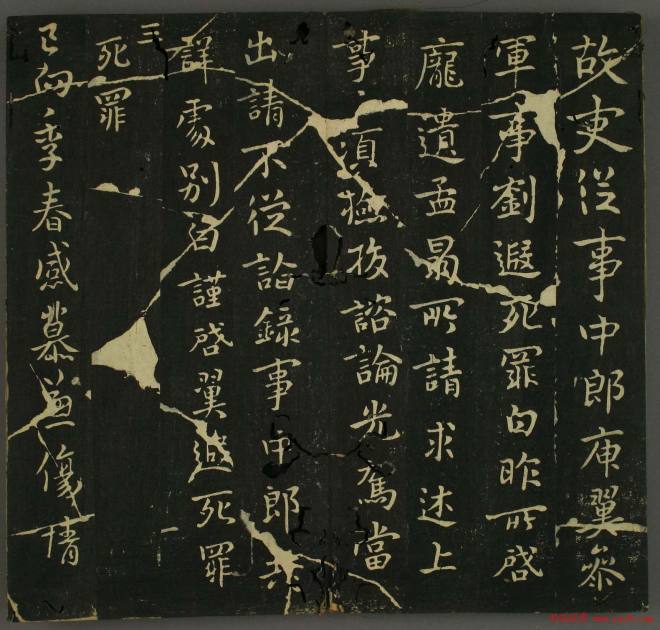 故吏從事中郎庾翼參
軍事劉遐死罪白昨所啓
龐遺孟昺所請求述上
事〻須檢校諮論光為當
出請不從詣錄事中郎共
詳處別白謹啓翼遐死罪
死罪
已向〻季春感慕兼傷情